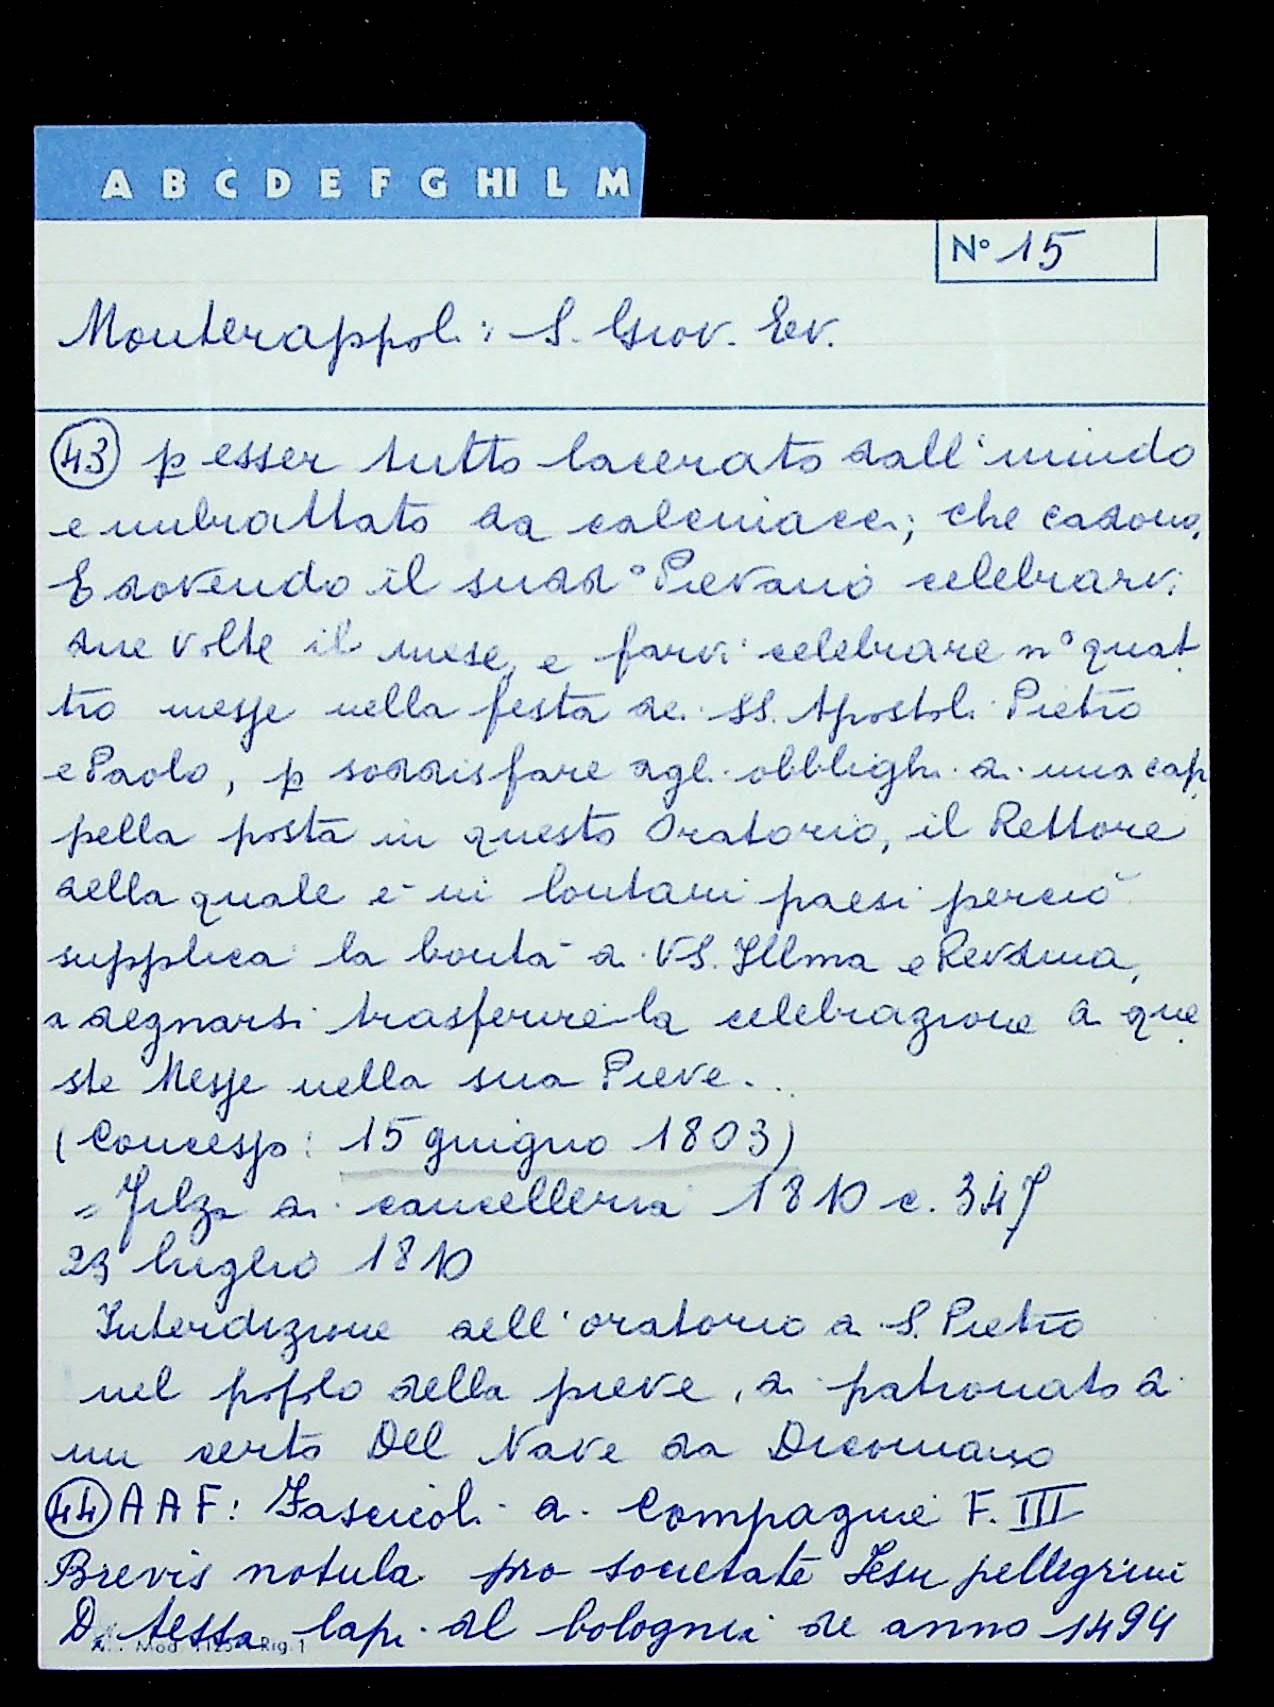 A B C D E F G HI L M
N° 15
Monterappoli: S. Giov. Ev.
43 p esser tutto lacerato dall'umido
e imbrattato da calcinacci; che cadono.
E dovendo il sudd° Pievano celebrarvi
due volte il mese, e farvi celebrare n° quat
tro messe nella festa dei SS. Apostoli Pietro
e Paolo, p soddisfare agli obblighi di una cap
pella posta in questo Oratorio, il Rettore
della quale è in lontani paesi perciò
supplica la bontà di VS. Illma e Revdma,
a degnarsi trasferire la celebrazione di que
ste Messe nella sua Pieve..
(Concesso: 15 giugno 1803)
= Filza di cancelleria 1810 c. 347
23 luglio 1810
Interdizione dell'oratorio di S. Pietro
nel popolo della pieve, di patronato di
un certo Del Nave da Dicomano
44 AAF: Fascicoli di Compagnie F. III
Brevis notula pro societate Iesu pellegrini
D. testa lapi al bolognia de anno 1494
Mod. Rig. 1